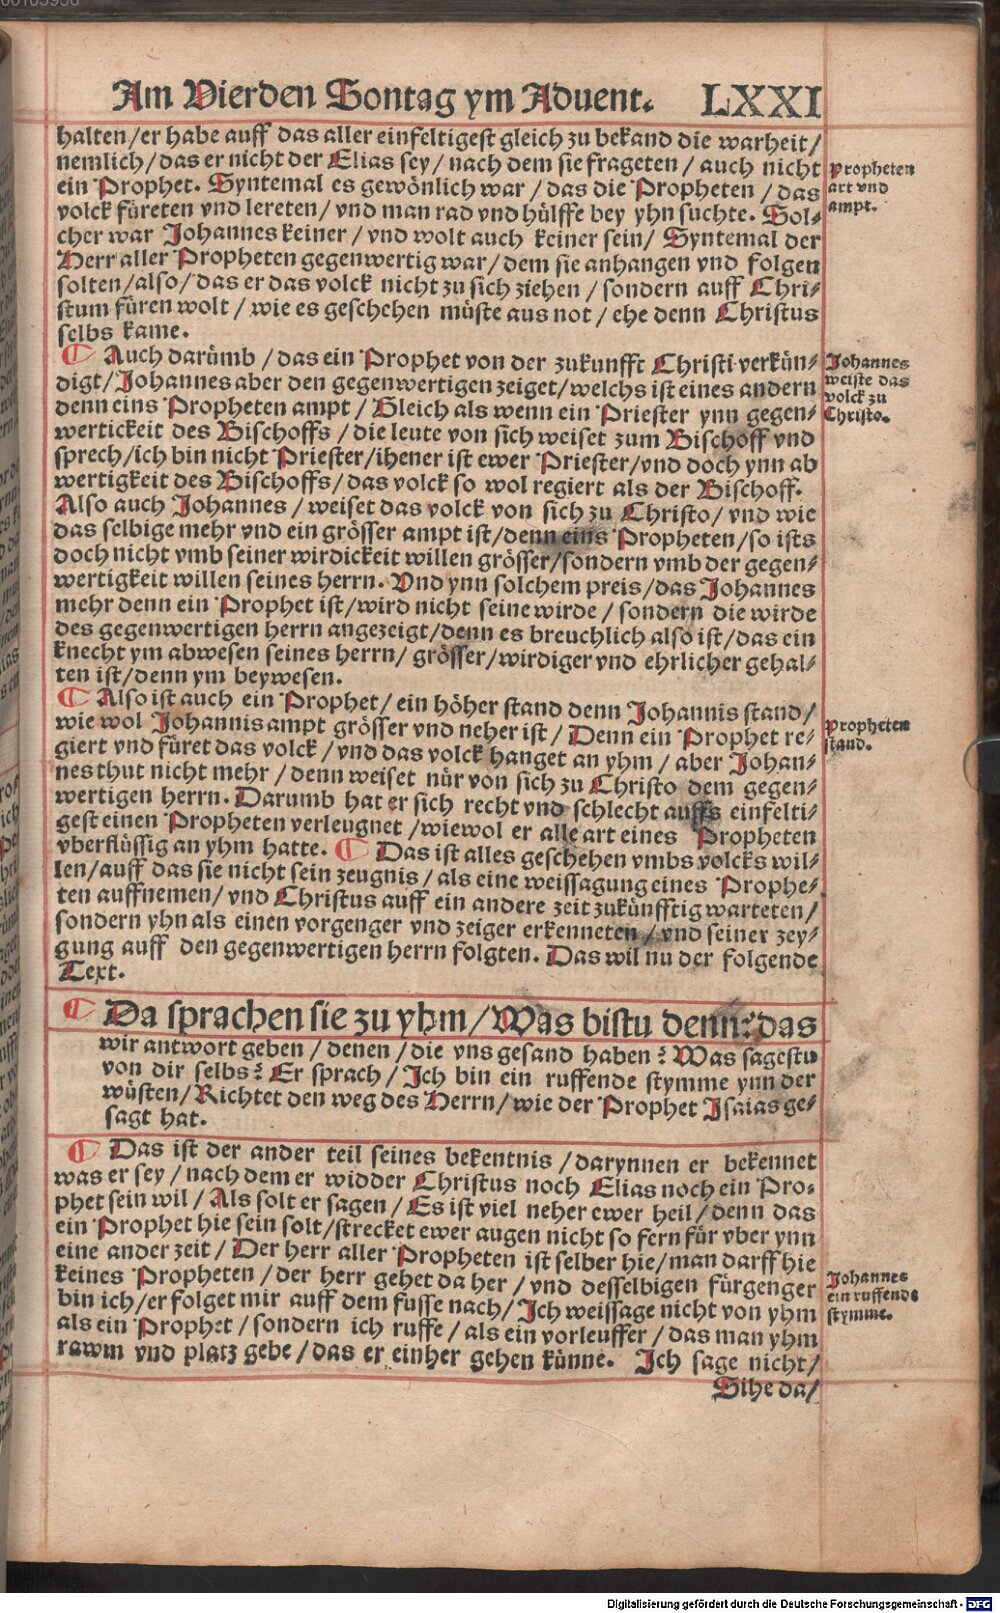 Am Vierden Sontag ym Aduent. LXXI
halten/er habe auff das aller einfeltigest gleich zu bekand die warheit/
nemlich/das er nicht der Elias sey/nach dem sie frageten/auch nicht
ein Prophet. Syntemal es gewönlich war/das die Propheten/das
volck füreten vnd lereten/vnd man rad vnd hülffe bey yhn suchte. Sol⸗
cher war Johannes keiner/vnd wolt auch keiner sein/Syntemal der
Herr aller Propheten gegenwertig war/dem sie anhangen vnd folgen
solten/also/das er das volck nicht zu sich ziehen/sondern auff Chri⸗
stum füren wolt/wie es geschehen müste aus not/ehe denn Christus
selbs kame.
Propheten
art vnd
ampt.
¶ Auch darümb/das ein Prophet von der zukunfft Christi verkün⸗
digt/Johannes aber den gegenwertigen zeiget/welchs ist eines andern
denn eins Propheten ampt/Gleich als wenn ein Priester ynn gegen⸗
wertickeit des Bischoffs/die leute von sich weiset zum Bischoff vnd
sprech/ich bin nicht Priester/ihener ist ewer Priester/vnd doch ynn ab
wertigkeit des Bischoffs/das volck so wol regiert als der Bischoff.
Also auch Johannes/weiset das volck von sich zu Christo/vnd wie
das selbige mehr vnd ein grösser ampt ist/denn eins Propheten/so ists
doch nicht vmb seiner wirdickeit willen grösser/sondern vmb der gegen⸗
wertigkeit willen seines herrn. Vnd ynn solchem preis/das Johannes
mehr denn ein Prophet ist/wird nicht seine wirde/sondern die wirde
des gegenwertigen herrn angezeigt/denn es breuchlich also ist/das ein
knecht ym abwesen seines herrn/grösser/wirdiger vnd ehrlicher gehal⸗
ten ist/denn ym beywesen.
Johannes
weiste das
volck zu
Christo.
¶ Also ist auch ein Prophet/ein höher stand denn Johannis stand/
wie wol Johannis ampt grösser vnd neher ist/Denn ein Prophet re⸗
giert vnd füret das volck/vnd das volck hanget an yhm/aber Johan⸗
nes thut nicht mehr/denn weiset nür von sich zu Christo dem gegen⸗
wertigen herrn. Darumb hat er sich recht vnd schlecht auffs einfelti⸗
gest einen Propheten verleugnet/wiewol er alle art eines Propheten
vberflüssig an yhm hatte. ¶ Das ist alles geschehen vmbs volcks wil⸗
len/auff das sie nicht sein zeugnis/als eine weissagung eines Prophe⸗
ten auffnemen/vnd Christus auff ein andere zeit zukünfftig warteten/
sondern yhn als einen vorgenger vnd zeiger erkenneten/vnd seiner zey⸗
gung auff den gegenwertigen herrn folgten. Das wil nu der folgende
Text.
Propheten
stand.
¶ Da sprachen sie zu yhm/Was bistu denn? das
wir antwort geben/denen/die vns gesand haben? Was sagestu
von dir selbs? Er sprach/Ich bin ein ruffende stymme ynn der
wüsten/Richtet den weg des Herrn/wie der Prophet Isaias ge⸗
sagt hat.
¶ Das ist der ander teil seines bekentnis/darynnen er bekennet
was er sey/nach dem er widder Christus noch Elias noch ein Pro⸗
phet sein wil/Als solt er sagen/Es ist viel neher ewer heil/denn das
ein Prophet hie sein solt/strecket ewer augen nicht so fern für vber ynn
eine ander zeit/Der herr aller Propheten ist selber hie/man darff hie
keines Propheten/der herr gehet da her/vnd desselbigen fürgenger
bin ich/er folget mir auff dem fusse nach/Ich weissage nicht von yhm
als ein Prophet/sondern ich ruffe/als ein vorleuffer/das man yhm
rawm vnd platz gebe/das er einher gehen künne. Ich sage nicht/
Johannes
ein ruffende
stymme.
Sihe da/
Digitalisierung gefördert durch die Deutsche Forschungsgemeinschaft - DFG